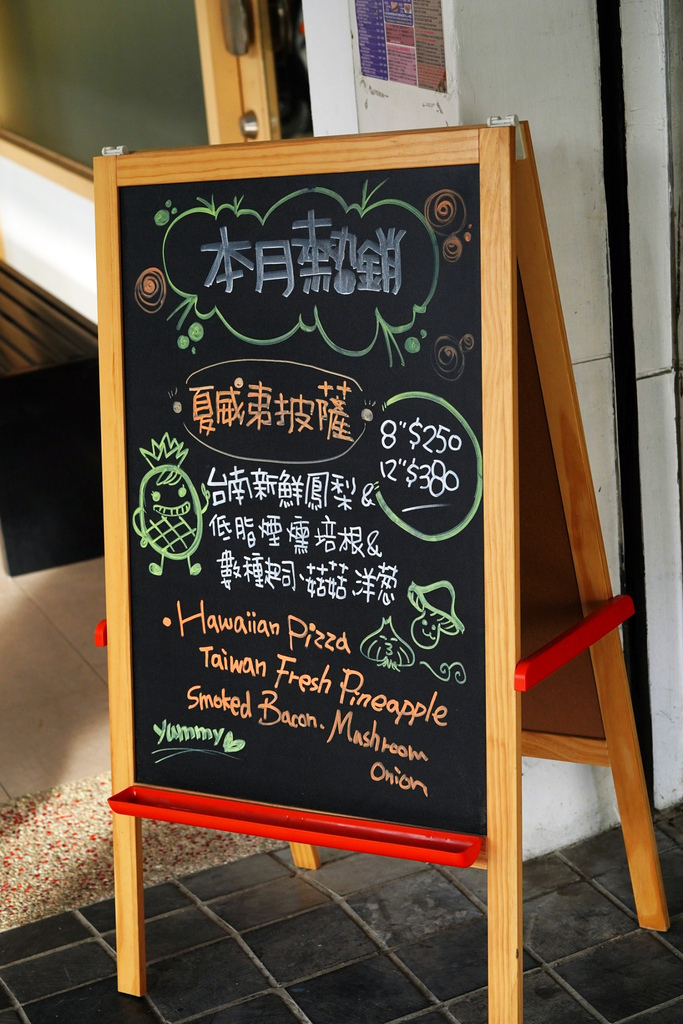 本月熱銷
夏威夷披薩
8" $250
12" $380
台南新鮮鳳梨 &
低脂煙燻培根 &
數種起司、菇菇、洋蔥
• Hawaiian Pizza
Taiwan Fresh Pineapple
Smoked Bacon. Mashroom
Onion
yummy